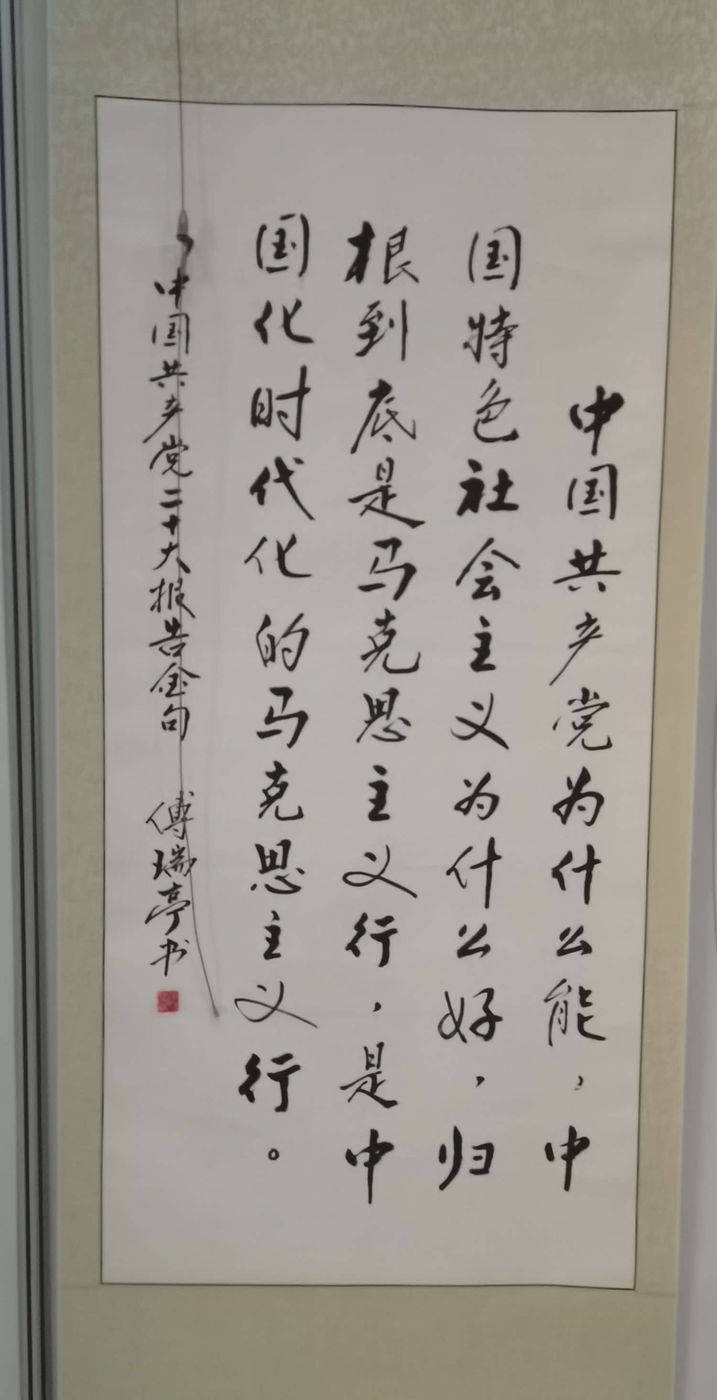 中国共产党为什么能，中
国特色社会主义为什么好，归
根到底是马克思主义行，是中
国化时代化的马克思主义行。
中国共产党二十大报告金句 傅瑞亭书